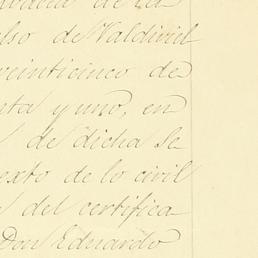 de La
lso de Valdivid
veinticinco de
nta y uno, en
de dicha Se
exto de lo civil
del certifica
Don Eduardo